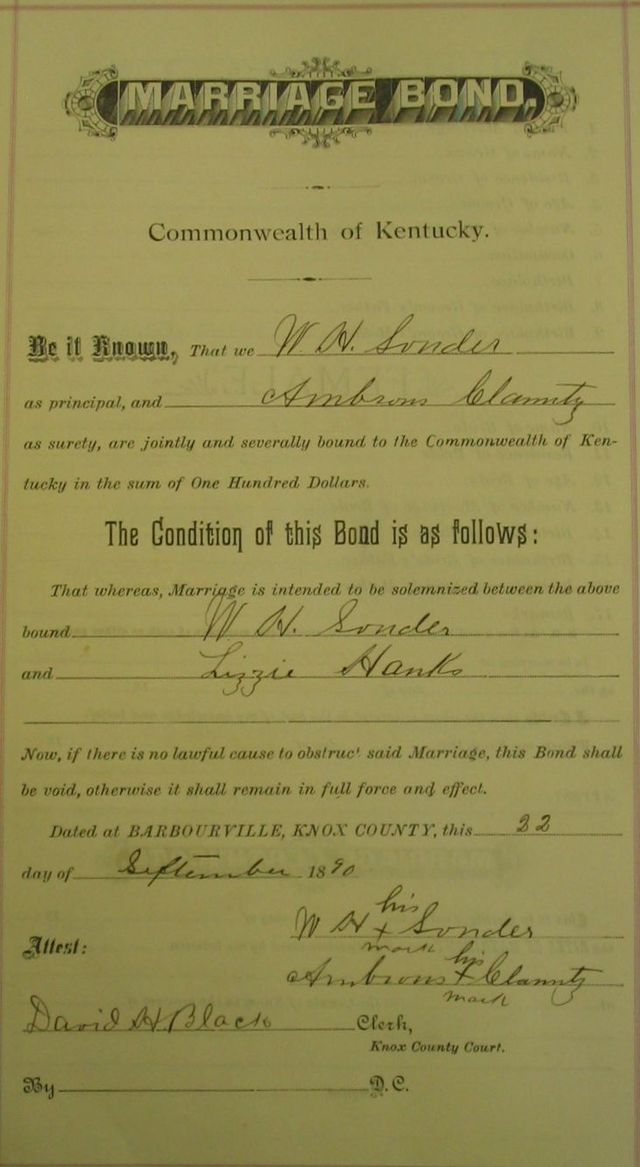 MARRIAGE BOND.
Commonwealth of Kentucky.
Be it Known, That we W. H. Sonder
as principal, and Ambrons Clamnty
as surety, are jointly and severally bound to the Commonwealth of Ken-
tucky in the sum of One Hundred Dollars.
The Condition of this Bond is as follows:
That whereas, Marriage is intended to be solemnized between the above
bound W H. Sonder
and Lizzie Hanks
Now, if there is no lawful cause to obstruct said Marriage, this Bond shall
be void, otherwise it shall remain in full force and effect.
Dated at BARBOURVILLE, KNOX COUNTY, this 22
day of September 1890
his
W H x Sonder
mark
Attest:
his
Ambrons x Clamnty
mark
David H Black Clerk,
Knox County Court.
By D.C.